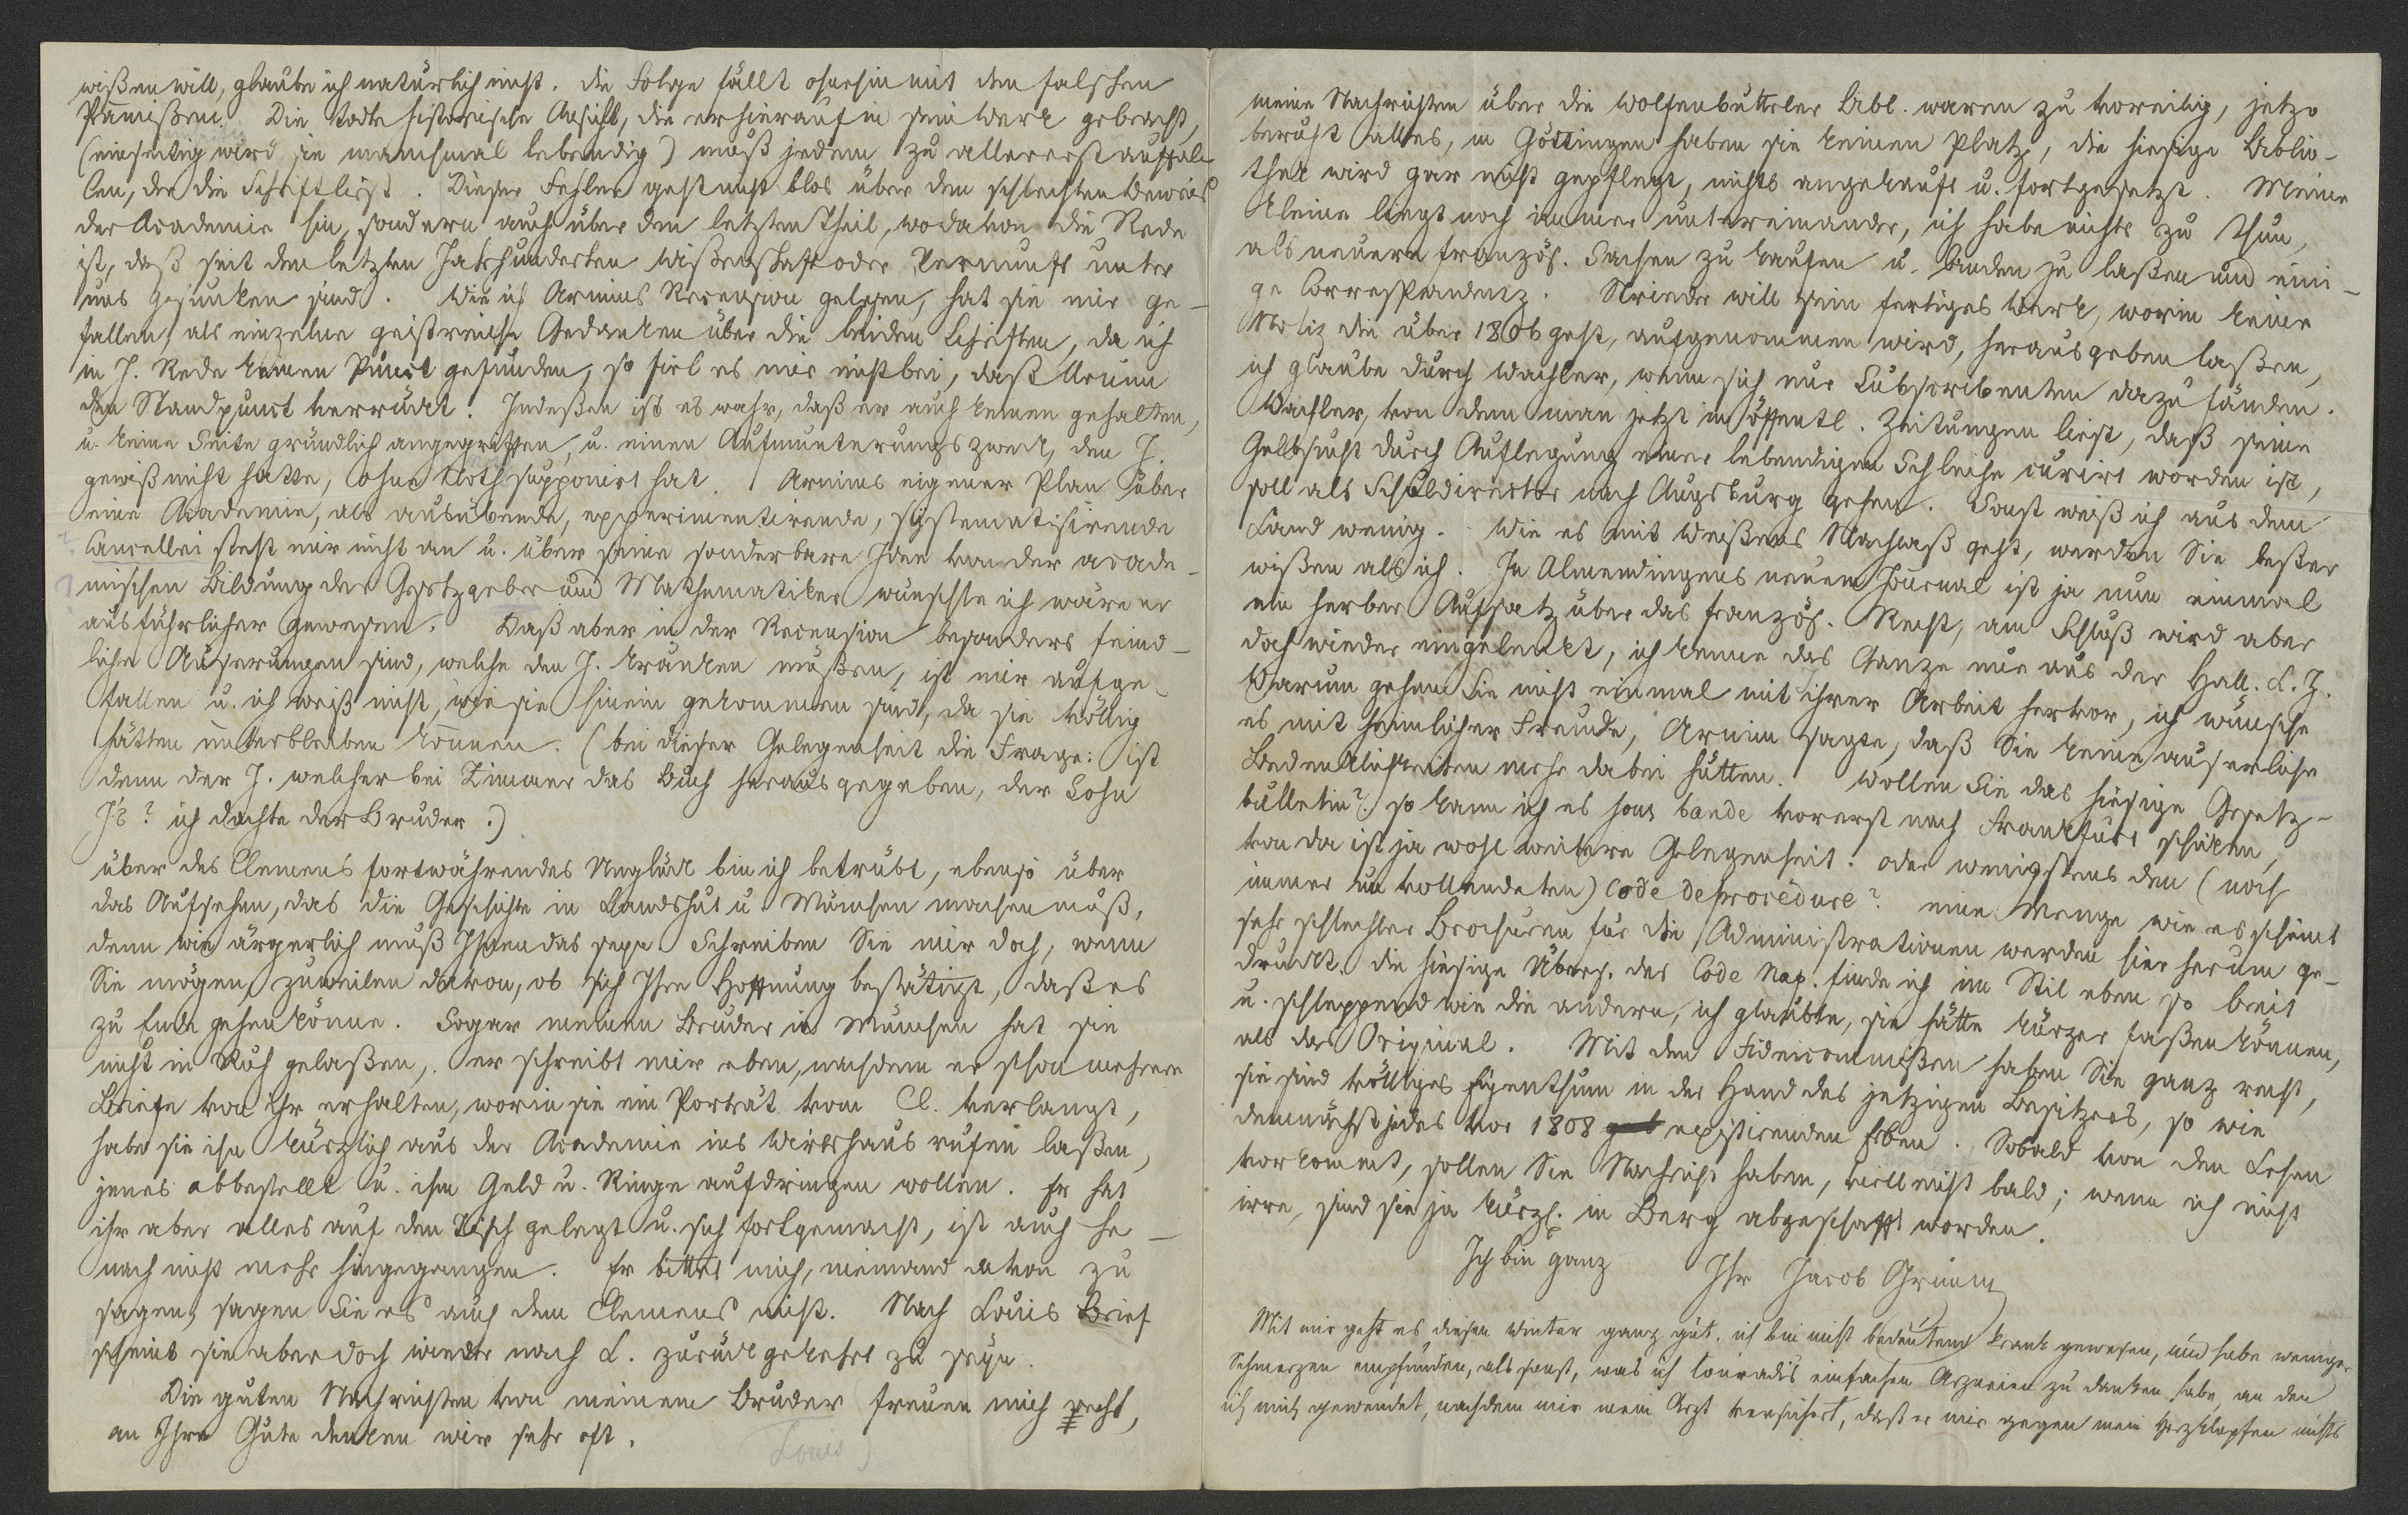 wißen will, glaube ich natürlich nicht. die Folge fällt ohnehin mit den falschen
Prämißen. Die todte historische Ansicht, die er hierauf in sein Werk gebracht,
(einseitig wird sie manchmal lebendig) muß jedem zu allererst auffal-
len, der die Schrift liest. Dieser Fehler geht nicht blos über den schlechten Beweis
der Academie hin, sondern auch über den letzten Theil, wodavon die Rede
ist, daß seit den letzten Jahrhunderten Wißenschaft oder Vernunft unter
uns gesunken sind. Wie ich Arnims Recension gelesen, hat sie mir ge-
fallen, als einzelne geistreiche Gedanken über die beiden Schriften, da ich
in J. Rede keinen Punct gefunden, so fiel es mir nicht bei, daß Arnim
den Standpunct verrückt. Indeßen ist es wahr, daß er auch keinen gehalten,
u. keine Seite gründlich angegriffen, u. einen Aufmunterungszweck, den J.
gewiß nicht hatte, ohne Noth supponirt hat. Arnims eigener Plan über
eine Academie, als ausübende, experimentirende, systematisirende
Cancellei steht mir nicht an u. über seine sonderbare Idee von der acade-
mischen Bildung der Gesetzgeber und Mathematiker wünschte ich wäre er
ausführlicher gewesen. Daß aber in der Recension besonders feind-
liche Äuserungen sind, welche den J. kränken müßen, ist mir aufge-
fallen u. ich weiß nicht, wie sie hinein gekommen sind, da sie völlig
hätten unterbleiben können. (bei dieser Gelegenheit die Frage: ist
denn der J. welcher bei Zimmer das Buch herausgegeben, der Sohn
J's? ich dachte der Bruder.)
über des Clemens fortwährendes Unglück bin ich betrübt, ebenso über
das Aufsehen, das die Geschichte in Landshut u. München machen muß,
denn wie ärgerlich muß Ihnen das seyn. Schreiben Sie mir doch, wenn
Sie mögen, zuweilen davon, ob sich Ihre Hoffnung bestätigt, daß es
zu Ende gehen könne. Sogar meinen Bruder in München hat sie
nicht in Ruh gelaßen, er schreibt mir eben, nachdem er schon mehrere
Briefe von ihr erhalten, worin sie ein Porträt vom Cl. verlangt,
habe sie ihn kürzlich aus der Academie ins Wirtshaus rufen laßen,
jenes abbestellt u. ihm Geld u. Ringe aufdringen wollen. Er hat
ihr aber alles auf den Tisch gelegt u. sich fortgemacht, ist auch he-
nach nicht mehr hingegangen. Er bittet mich, niemand davon zu
sagen, sagen Sie es auch dem Clemens nicht. Nach Louis Brief
scheint sie aber doch wieder nach L. zurückgekehrt zu seyn.
Die guten Nachrichten von meinem Bruder freuen mich recht,
an Ihre Güte denken wir sehr oft.
Louis
meine Nachrichten über die Wolfenbütteler Bibl. waren zu voreilig, jetzo
beruht alles, in Göttingen haben sie keinen Platz, die hiesige Biblio-
thek wird gar nicht gepflegt, nichts angekauft u. fortgesetzt. Meine
kleine liegt noch immer untereinander, ich habe nichts zu thun,
als neuere französ. Sachen zu kaufen u. binden zu laßen und eini-
ge Correspondenz. Strieder will sein fertiges Werk, worin keine
Notiz die über 1806 geht, aufgenommen wird, herausgeben laßen,
ich glaube durch Wachler, wenn sich nur Subscribenten dazu fänden.
Wachler, von dem man jetzt in öffentl. Zeitungen liest, daß seine
Gelbsucht durch Auflegung einer lebendigen Schleihe curirt worden ist,
soll als Schuldirector nach Augsburg gehen. Sonst weiß ich aus dem
Land wenig. Wie es mit Weißens Nachlaß geht, werden Sie beßer
wißen als ich. In Almendingens neuem Journal ist ja nun einmal
ein herber Aufsatz über das französ. Recht, am Schluß wird aber
doch wieder eingelenkt, ich kenne das Ganze nur aus der Hall. L. Z.
Warum gehen Sie nicht einmal mit ihrer Arbeit hervor, ich wünsche
es mit heimlicher Freude, Arnim sagte, daß Sie keine auserliche
Bedenklichkeiten mehr dabei hätten. Wollen Sie das hiesige Gesetz-
bulletin? so kann ich es sous bande vorerst nach Frankfurt schicken,
von da ist ja wohl weitere Gelegenheit. oder wenigstens den (noch
immer unvollendeten) Code de procedure? eine Menge wie es scheint
sehr schlechter Brochuren für die Administrationen werden hier herum ge-
druckt. die hiesige Übers. des Code Nap. finde ich im Stil eben so breit
u. schleppend wie die andern, ich glaubte, sie hätte kürzer faßen können,
als das Original. Mit den Fideicommißen haben Sie ganz recht,
sie sind völliges Eigenthum in der Hand des jetzigen Besitzers, so wie
demnächst jedes vor 1808 existirenden Erben. Sobald von den Lehen
vorkommt, sollen Sie Nachricht haben, viell nicht bald; wenn ich nicht
irre, sind sie ja kürzl. in Berg abgeschafft worden.
Ich bin ganz Ihr Jacob Grimm
Mit mir geht es diesen Winter ganz gut, ich bin nicht bedeutend krank gewesen, und habe weniger
Schmerzen empfunden, als sonst, was ich Conradis einfachen Arzneien zu danken habe, an den
ich mich gewendet, nachdem mir mein Arzt versichert, daß er mir gegen mein Herzklopfen nichts